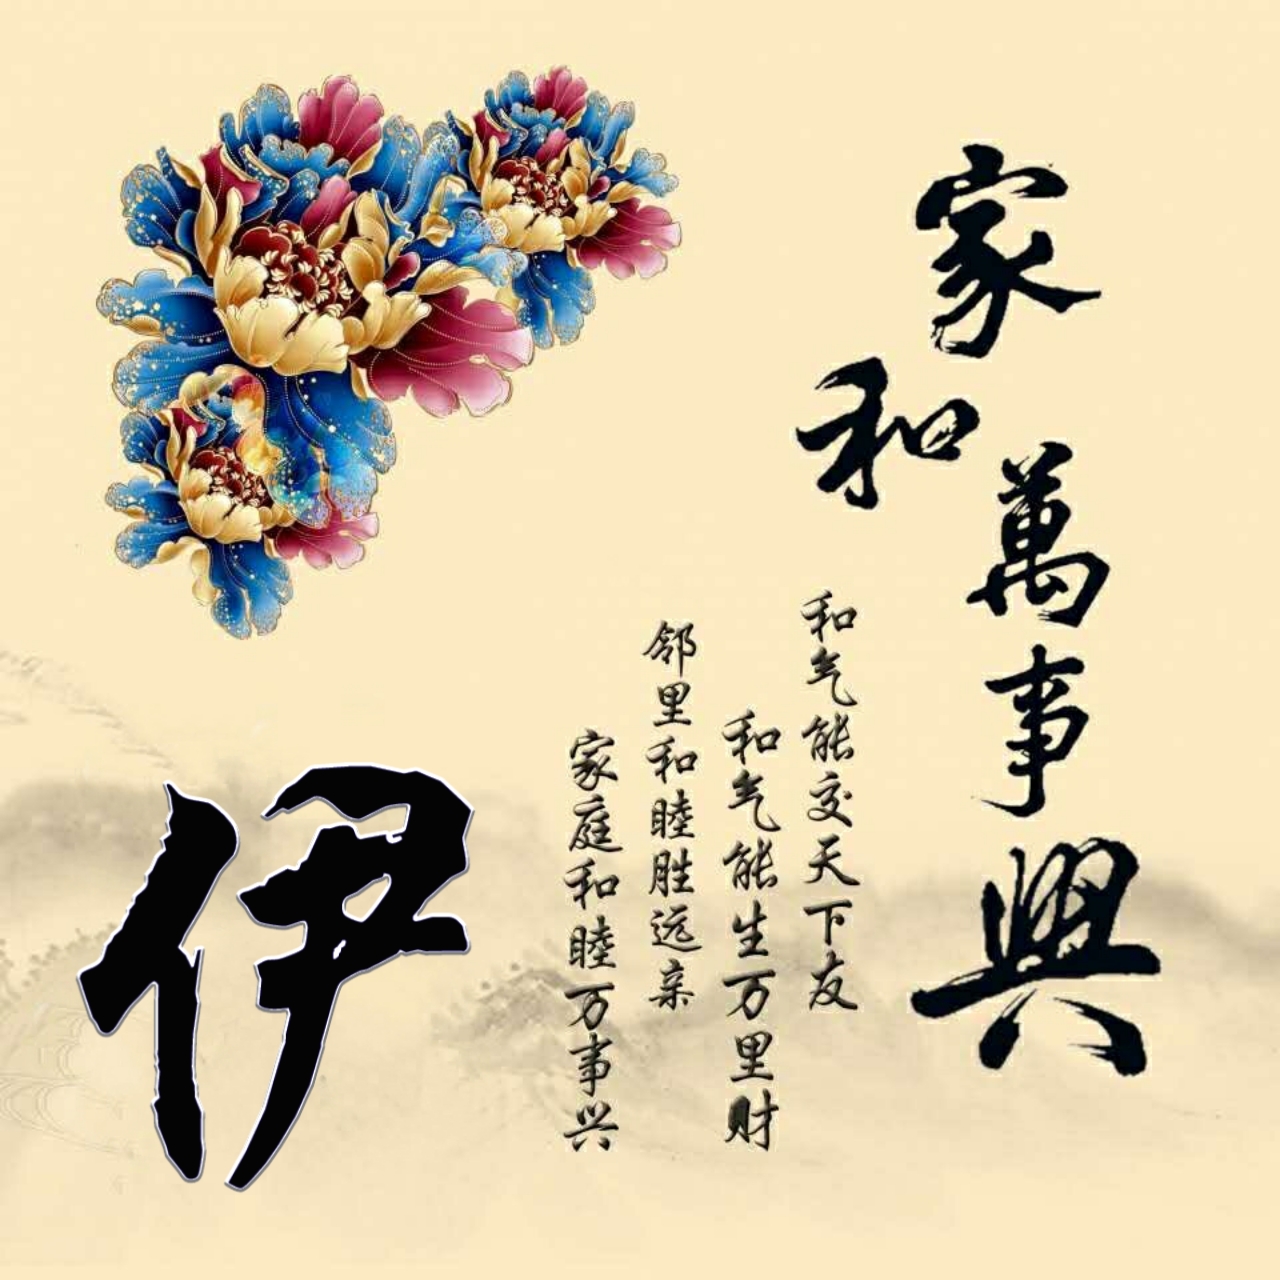 家和萬事興
和气能交天下友
和气能生万里财
邻里和睦胜远亲
家庭和睦万事兴
伊